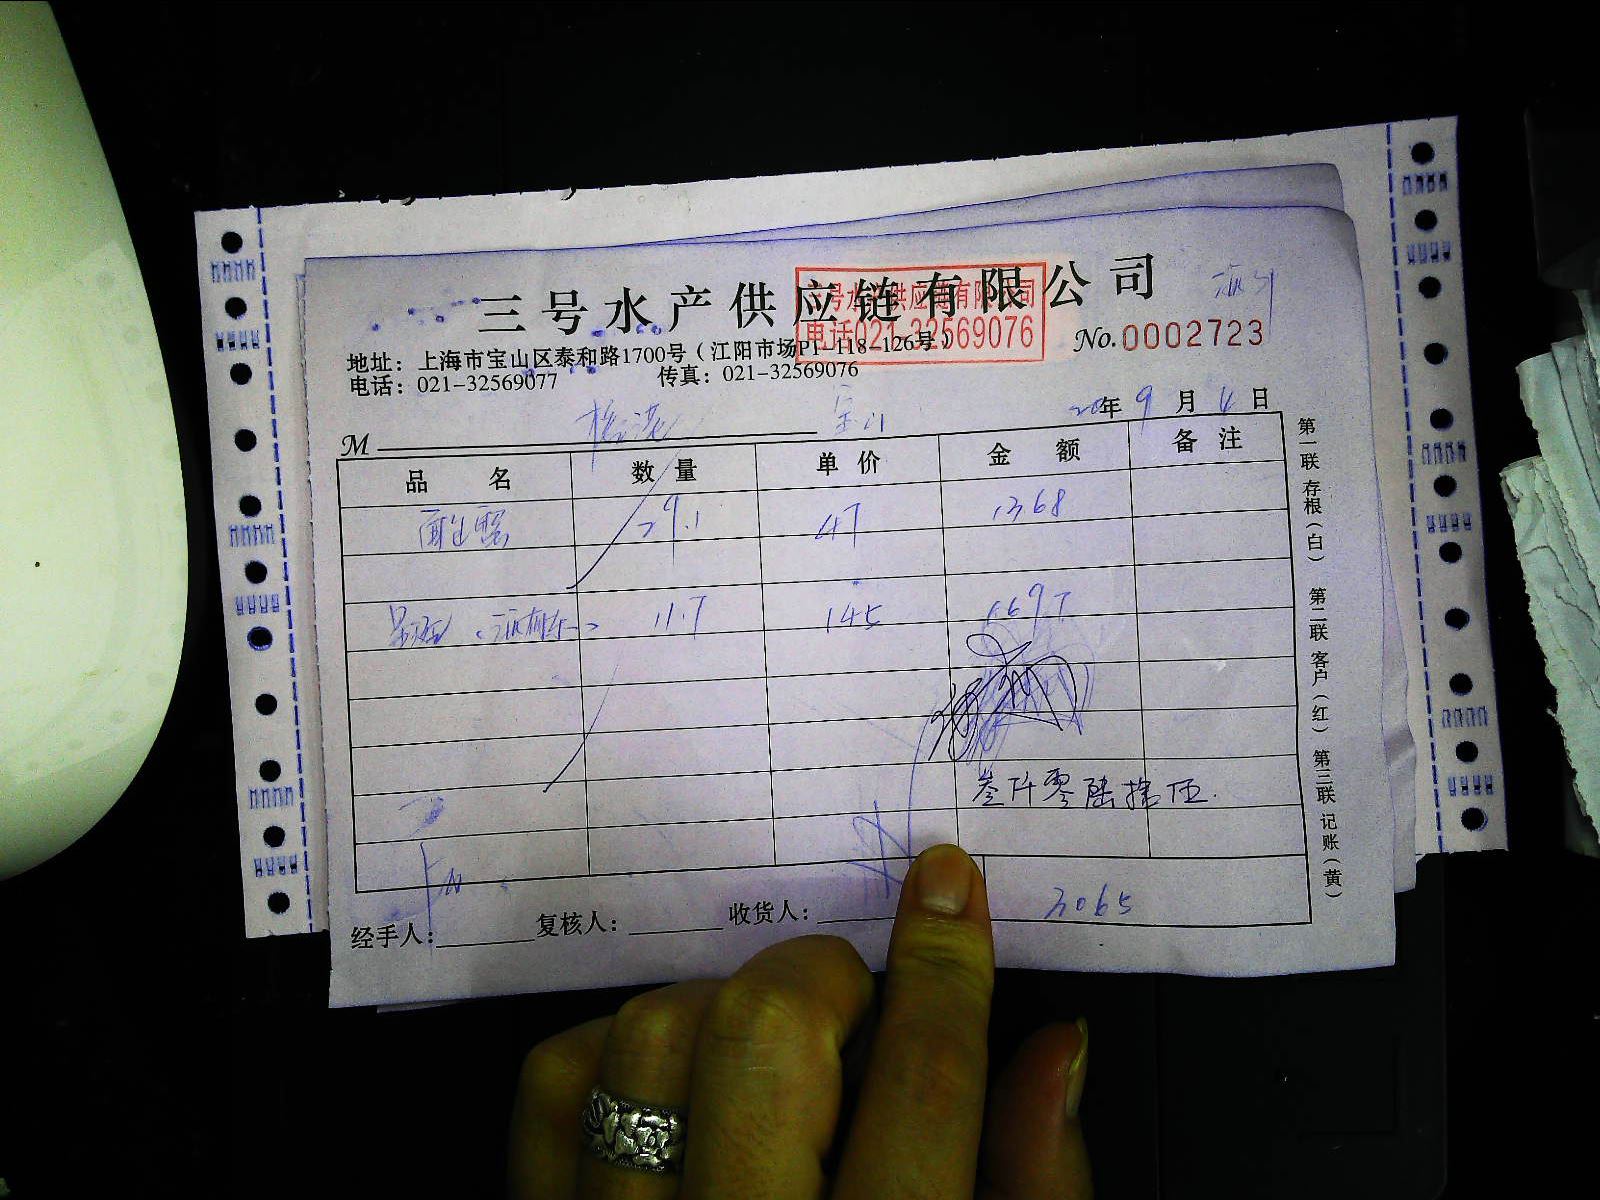 三号水产供应链有限公司
三号水产供应链有限公司
电话021-32569076
No.0002723
地址：上海市宝山区泰和路1700号（江阳市场P1-118-126号）
电话：021-32569077 传真：021-32569076
20年 9月 4日
M
品名 数量 单价 金额 备注
29.1 47 1368
11.7 145 1697
叁仟零陆拾伍
3065
经手人： 复核人： 收货人：
第一联 存根（白） 第二联 客户（红） 第三联 记账（黄）